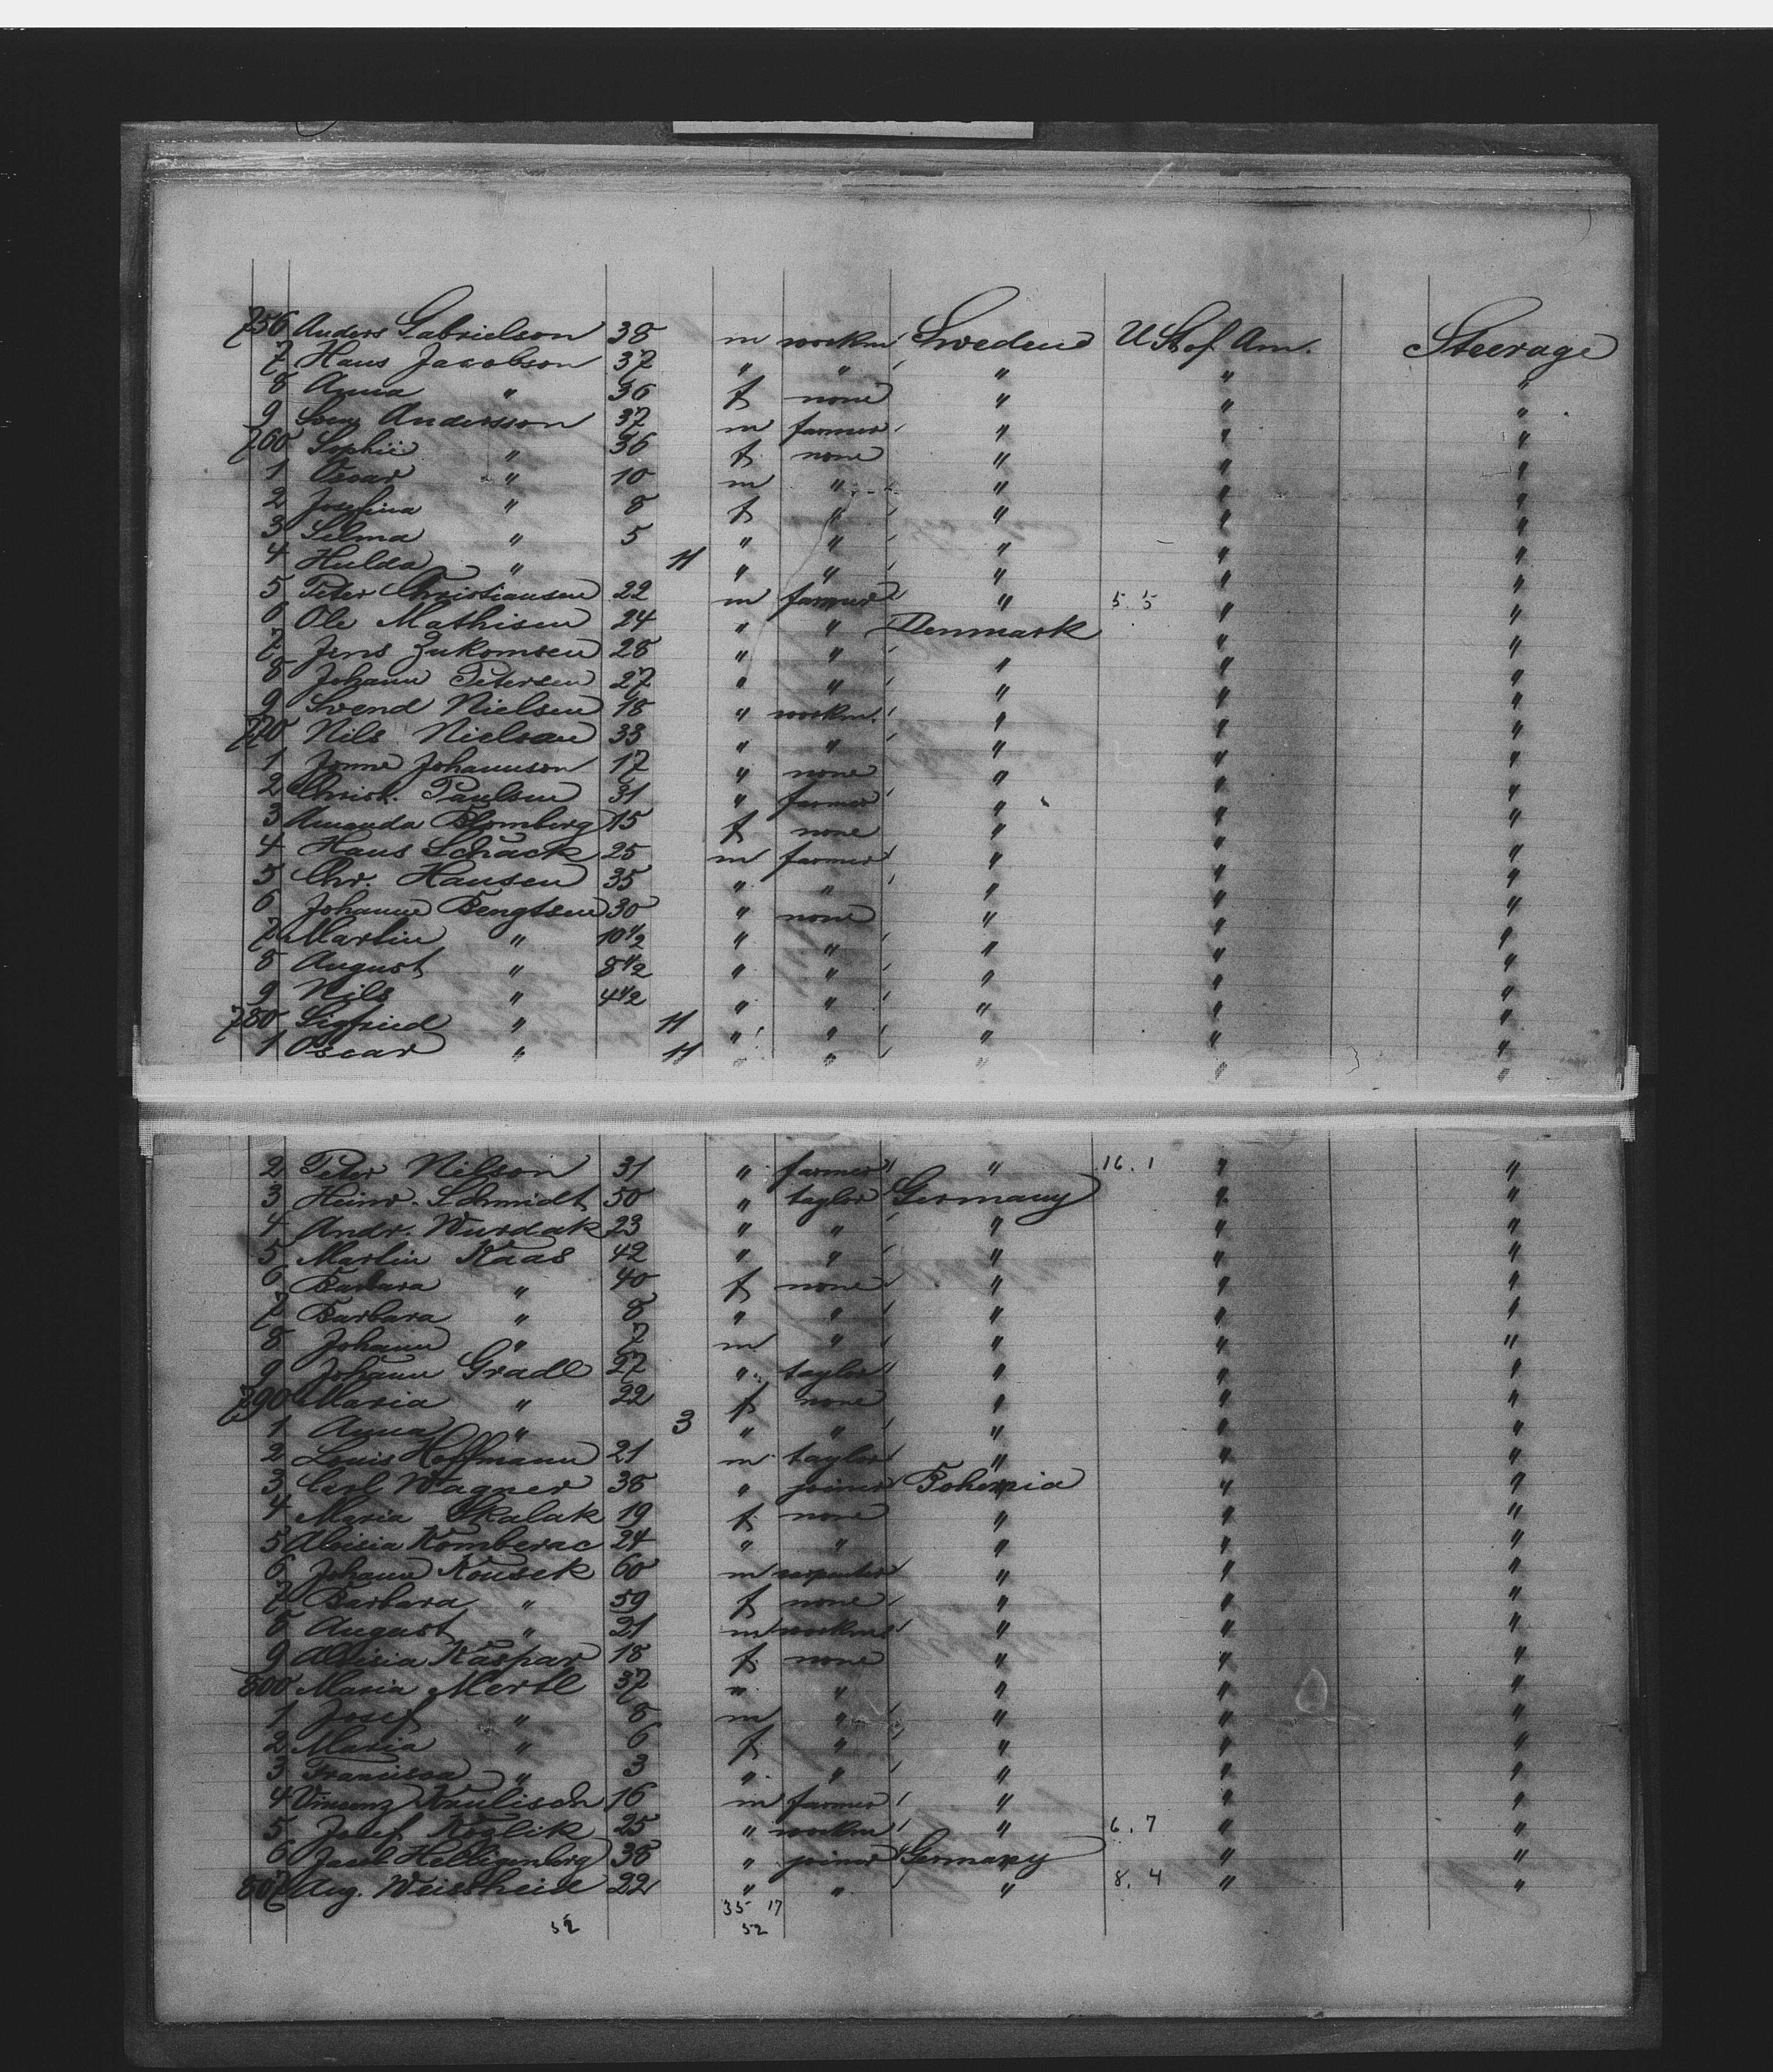 756 Anders Gabrielson 38 m workm Sweden U St of Am. Steerage
7 Hans Jacobson 37 " " " " "
8 Anna " 36 f none " " "
9 Sven Andersson 37 m farmer " " "
760 Sophie " 36 f none " " "
1 Oscar " 10 m " " " "
2 Josefina " 8 f " " " "
3 Selma " 5 " " " " "
4 Hulda " 11 " " " " "
5 Peter Christiansen 22 m farmer " 5. 5 " "
6 Ole Mathisen 24 " " Denmark " "
7 Jens Zukomsen 28 " " " " "
8 Johann Petersen 27 " " " " "
9 Svend Nielsen 18 " workm. " " "
770 Nils Nielsen 33 " " " " "
1 Johannson 17 " none " " "
2 Christ. Paulsen 31 " farmer " " "
3 Amanda Blomberg 15 f none " " "
4 Hans Schack 25 m farmer " " "
5 Chr. Hansen 35 " " " " "
6 Johanne Bengtsen 30 " none " " "
7 Martin " 10 1/2 " " " " "
8 August " 8 1/2 " " " " "
9 Nils " 4 1/2 " " " " "
780 Sigfried " 11 " " " " "
1 Oscar " 11 " " " " "
2 Peter Nilson 31 " farmer " 16. 1 " "
3 Heinr. Schmidt 50 " taylor Germany " "
4 Andr. Wurdak 23 " " " " "
5 Martin Kaas 42 " " " " "
6 Barbara " 40 f none " " "
7 Barbara " 8 " " " " "
8 Johann " 7 m " " " "
9 Johann Gradl 27 " taylor " " "
790 Maria " 22 f none " " "
1 Anna " 3 " " " " "
2 Louis Hoffmann 21 m taylor " " "
3 Carl Wagner 38 " joiner Bohemia " "
4 Maria Skalak 19 f none " " "
5 Aloisia Komberac 24 " " " " "
6 Johann Kousek 60 m carpenter " " "
7 Barbara " 59 f none " " "
8 August " 21 m workm " " "
9 Aloisia Kaspar 18 f none " " "
800 Maria Mertl 37 " " " " "
1 Josef " 8 m " " " "
2 Maria " 6 f " " " "
3 Francisca " 3 " " " " "
4 Vincenz Kaulisch 16 m farmer " " "
5 Josef Kozlik 25 " workm " 6. 7 " "
6 Jacob Helligenberg 38 " joiner Germany " "
807 Aug. Weisheid 22 " " " 8. 4 " "
35 17
52 52